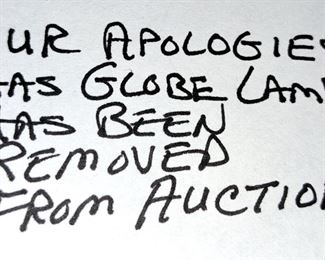 UR APOLOGIES
GAS GLOBE LAM
HAS BEEN
REMOVED
FROM AUCTION